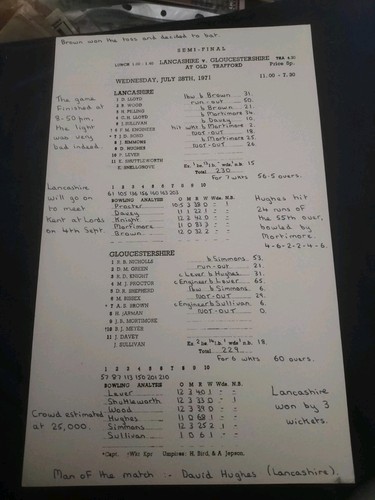 Brown won the toss and decided to bat.
SEMI-FINAL
LUNCH 1.00 - 1.40 LANCASHIRE v. GLOUCESTERSHIRE TEA 4.30
AT OLD TRAFFORD Price 5p.
WEDNESDAY, JULY 28th, 1971 11.00 - 7.30
The game finished at 8-50 pm, the light was very bad indeed.
LANCASHIRE
1 D. LLOYD lbw b. Brown 31.
2 B. WOOD run-out 50.
3 H. PILLING b. Brown 21.
4 C. H. LLOYD b. Mortimore 34.
5 J. SULLIVAN b. Davey 10.
* 6 F. M. ENGINEER hit wkt b. Mortimore 2.
* 7 J. D. BOND NOT-OUT 16.
8 J. SIMMONS b. Mortimore 25.
9 D. HUGHES NOT-OUT 26.
10 P. LEVER
11 K. SHUTTLEWORTH
K. SNELLGROVE
Ex. b lb w nb 15
Total 230
For 7 wkts 56.5 overs.
Lancashire will go on to meet Kent at Lords on 4th Sept.
1 2 3 4 5 6 7 8 9 10
61 105 136 156 160 163 203
BOWLING ANALYSIS O M R W Wds. N.B.
Procter 10.5 3 38 0 - 1
Davey 11 1 22 1 - -
Knight 12 2 42 0 - -
Mortimore 11 0 81 3 - -
Brown 12 0 32 2 - -
Hughes hit 24 runs of the 55th over, bowled by Mortimore 4-6-2-2-4-6.
GLOUCESTERSHIRE
1 R. B. NICHOLLS b. Simmons 53.
2 D. M. GREEN run-out 21.
3 R. D. KNIGHT c Lever b. Hughes 31.
4 M. J. PROCTOR c Engineer b. Lever 65.
5 D. R. SHEPHERD lbw b. Simmons 6.
6 M. BISSEX NOT-OUT 29.
* 7 A. S. BROWN c Engineer b. Sullivan 6.
8 H. JARMAN NOT-OUT 0.
9 J. B. MORTIMORE
†10 B. J. MEYER
11 J. DAVEY
J. SULLIVAN
Ex. b lb w nb 18
Total 229
For 6 wkts 60 overs.
1 2 3 4 5 6 7 8 9 10
57 87 113 150 201 210
BOWLING ANALYSIS O M R W Wds. N.B.
Lever 12 3 40 1 - -
Shuttleworth 12 3 33 0 - 1
Wood 12 3 39 0 - -
Hughes 11 0 68 1 - -
Simmons 12 3 25 2 - 1
Sullivan 1 0 6 1 - -
Crowd estimated at 25,000.
Lancashire won by 3 wickets.
*Capt. †Wkt Kpr Umpires: H. Bird, & A Jepson.
Man of the match :- David Hughes (Lancashire).